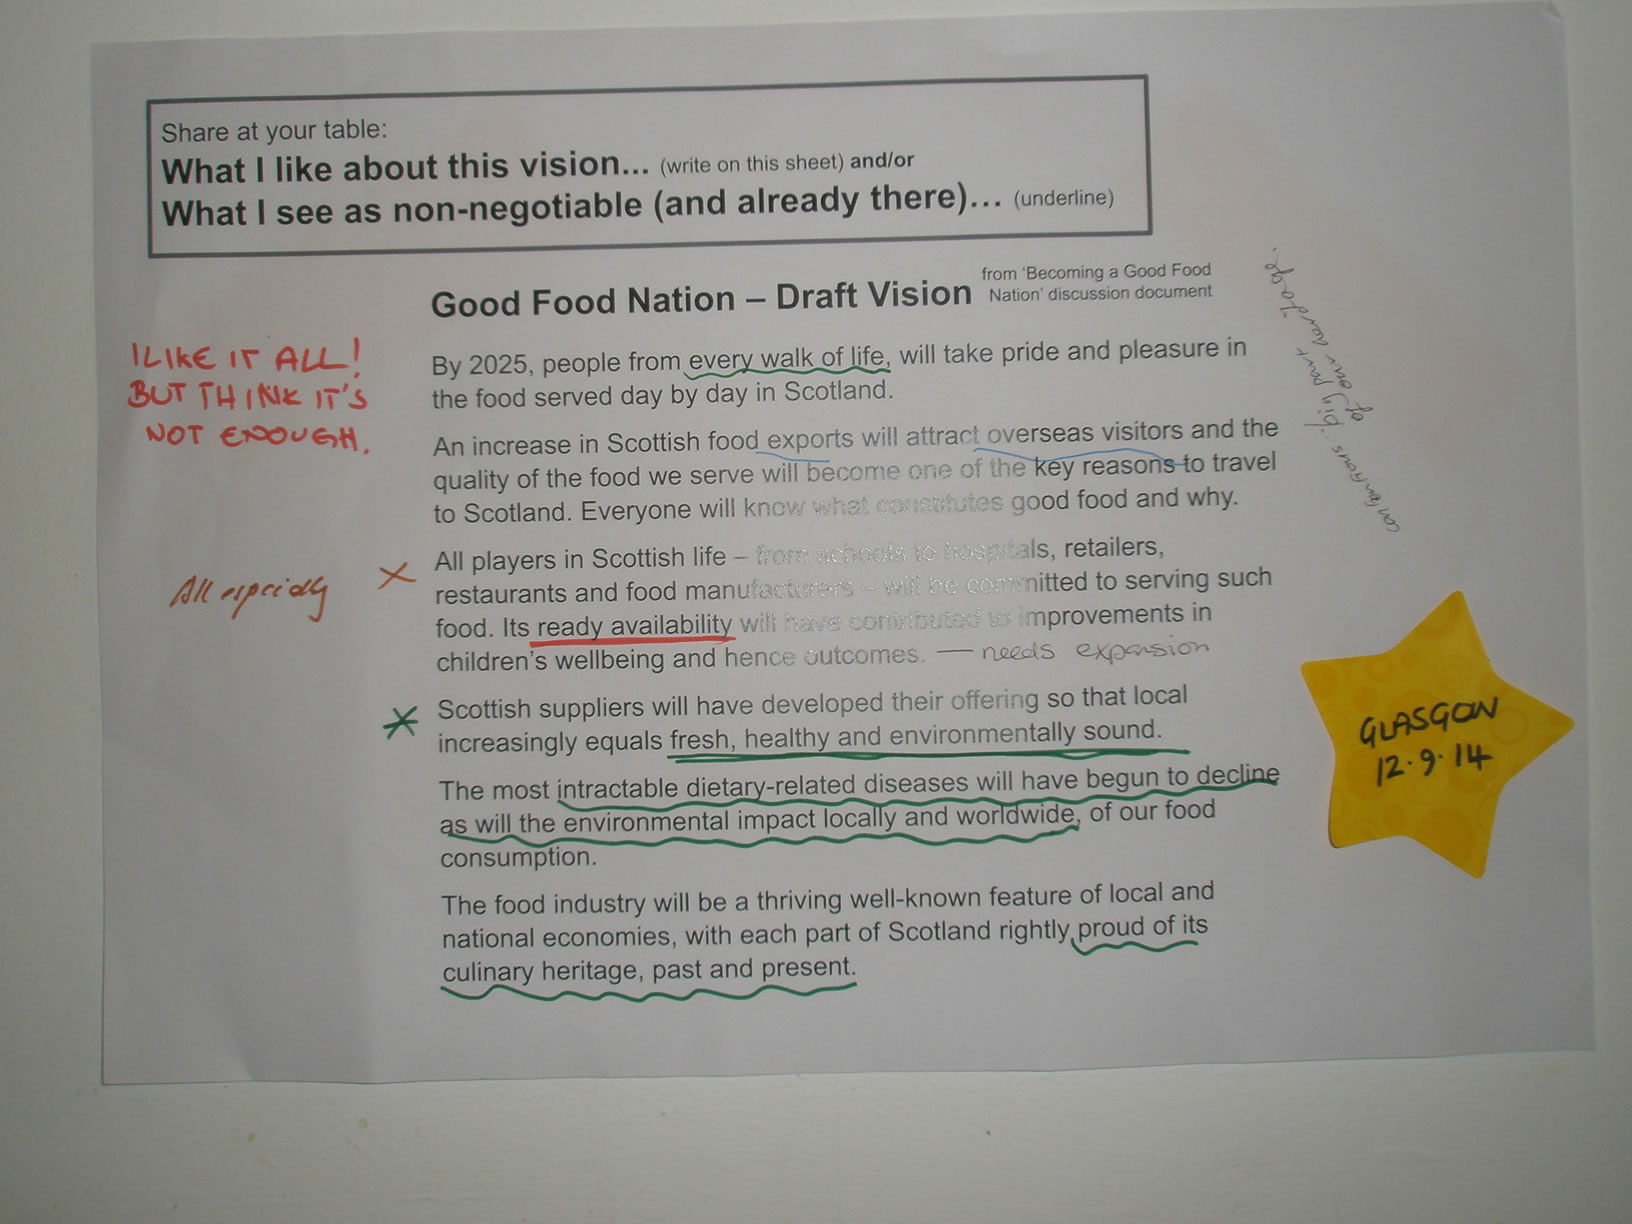 Share at your table:
What I like about this vision... (write on this sheet) and/or
What I see as non-negotiable (and already there)... (underline)
Good Food Nation – Draft Vision
from 'Becoming a Good Food
Nation' discussion document
I LIKE IT ALL!
BUT THINK IT'S
NOT ENOUGH.
By 2025, people from every walk of life, will take pride and pleasure in
the food served day by day in Scotland.
An increase in Scottish food exports will attract overseas visitors and the
quality of the food we serve will become one of the key reasons to travel
to Scotland. Everyone will know what constitutes good food and why.
contentious: big part
of our
All especially
All players in Scottish life – from schools to hospitals, retailers,
restaurants and food manufacturers – will be committed to serving such
food. Its ready availability will have contributed to improvements in
children's wellbeing and hence outcomes. — needs expansion
Scottish suppliers will have developed their offering so that local
increasingly equals fresh, healthy and environmentally sound.
The most intractable dietary-related diseases will have begun to decline
as will the environmental impact locally and worldwide, of our food
consumption.
The food industry will be a thriving well-known feature of local and
national economies, with each part of Scotland rightly proud of its
culinary heritage, past and present.
GLASGOW
12.9.14